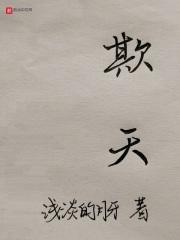 起点中文网
欺天
浅淡的月牙 著